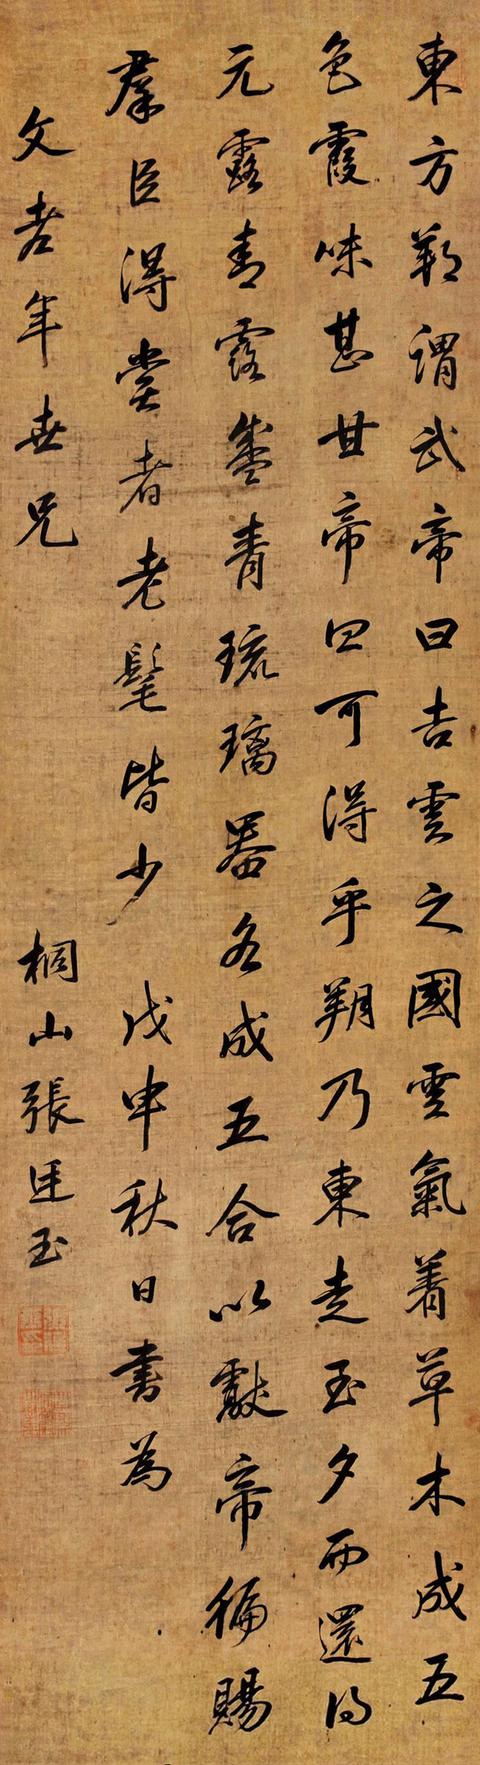 東方朔謂武帝曰吉雲之國雲氣着草木成五
色霞味甚甘帝曰可得乎朔乃東走至夕而還得
元露青露盛青琉璃器各成五合以獻帝徧賜
羣臣得嘗者老髦皆少 戊申秋日書為
文老年世兄 桐山張廷玉